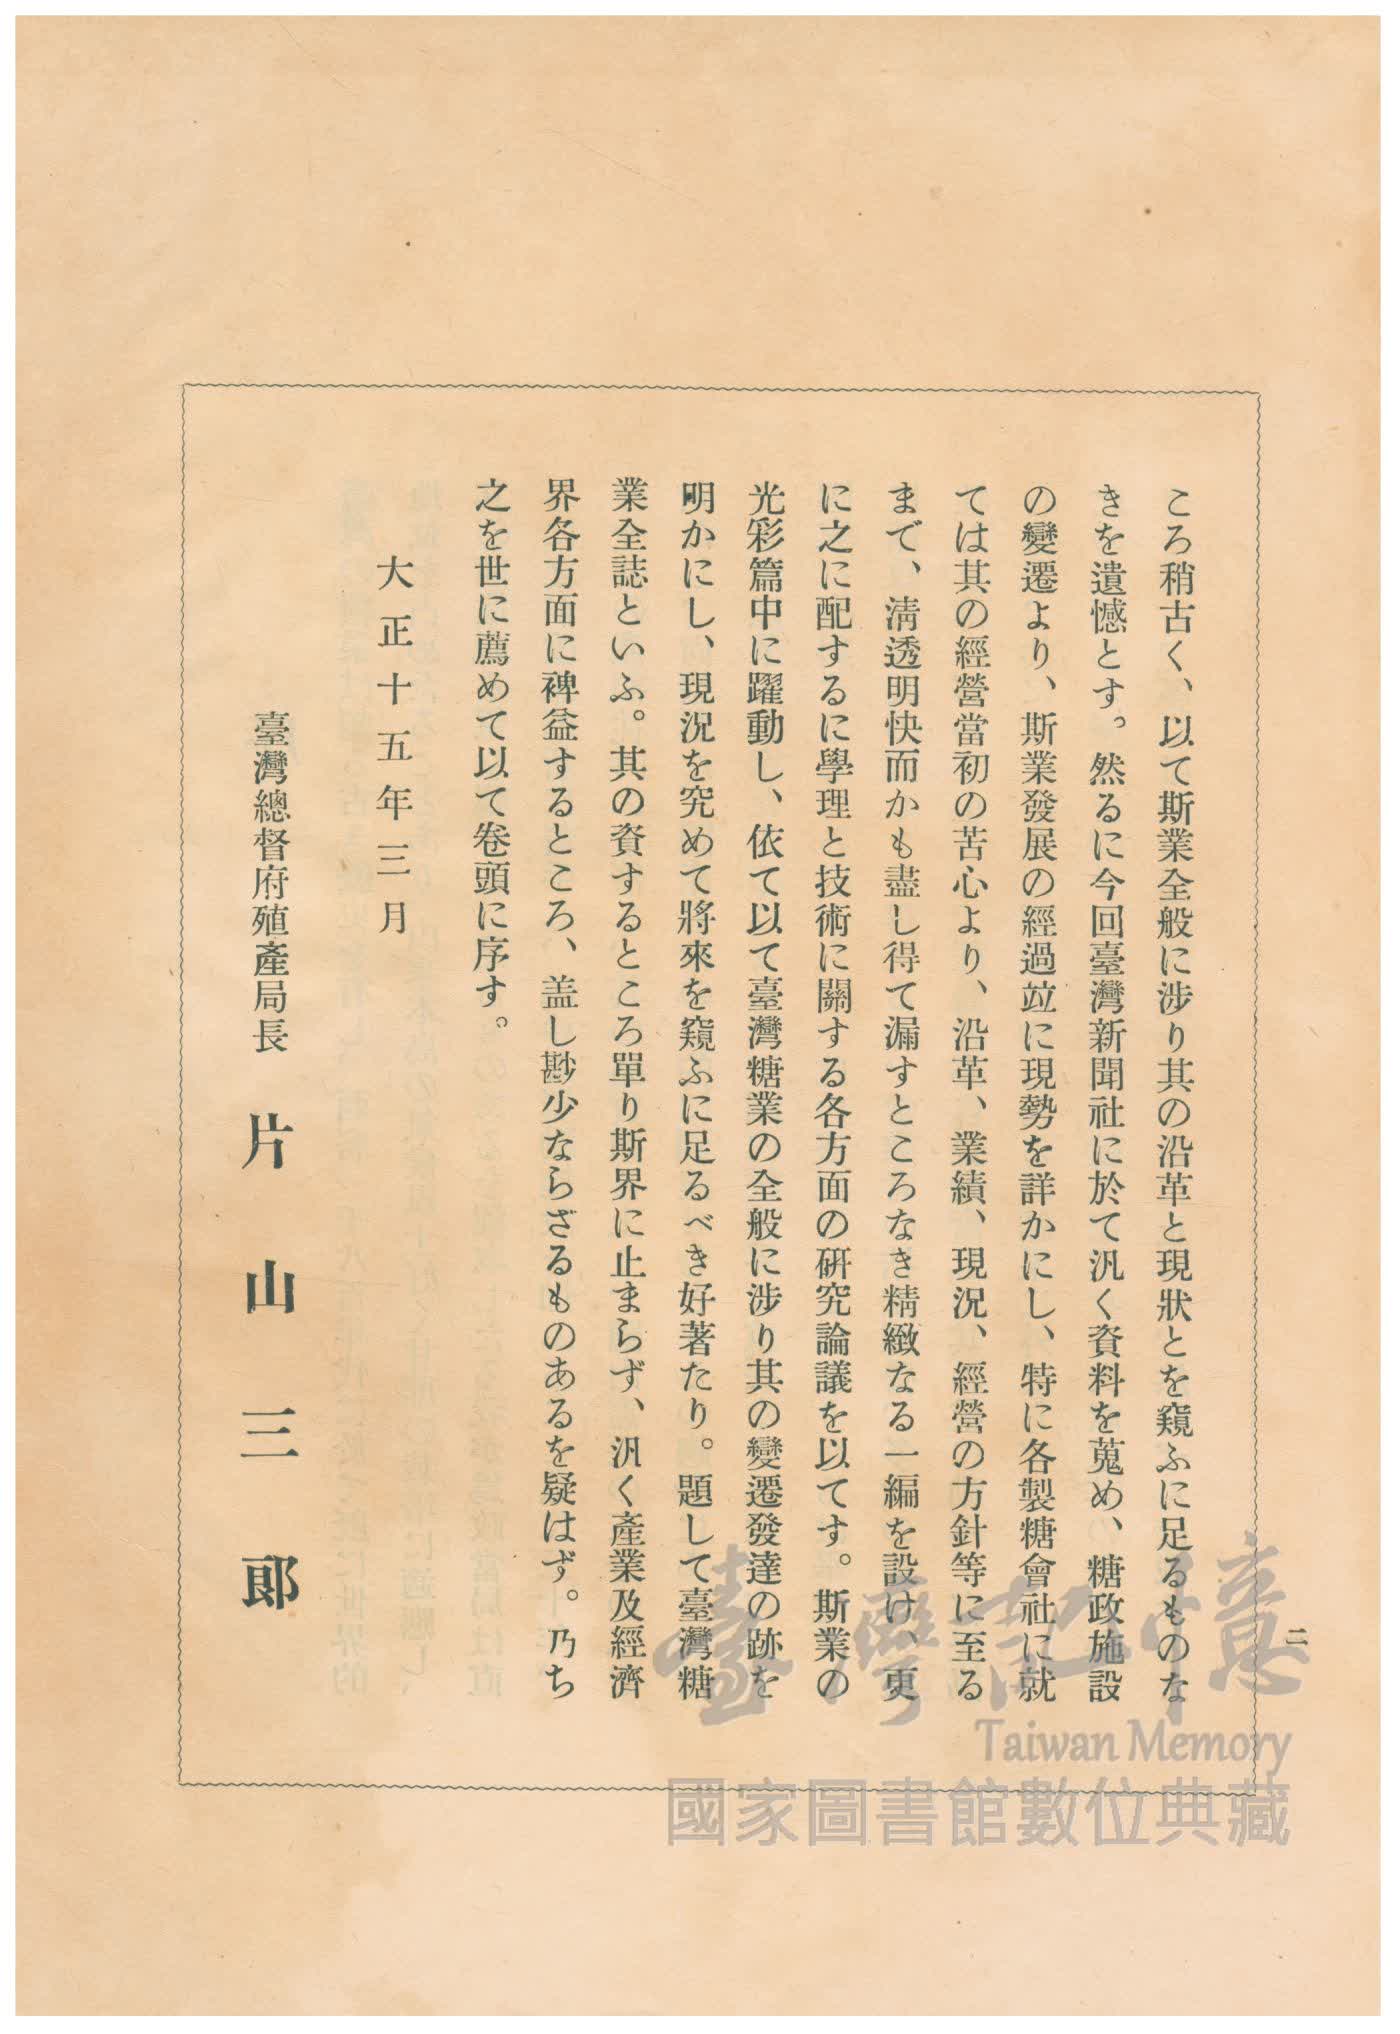 ころ稍古く、以て斯業全般に涉り其の沿革と現狀とを窺ふに足るものな
きを遺憾とす。然るに今回臺灣新聞社に於て汎く資料を蒐め、糖政施設
の變遷より、斯業發展の經過竝に現勢を詳かにし、特に各製糖會社に就
ては其の經營當初の苦心より、沿革、業績、現況、經營の方針等に至る
まで、淸透明快而かも盡し得て漏すところなき精緻なる一編を設け、更
に之に配するに學理と技術に關する各方面の硏究論議を以てす。斯業の
光彩篇中に躍動し、依て以て臺灣糖業の全般に涉り其の變遷發達の跡を
明かにし、現況を究めて將來を窺ふに足るべき好著たり。題して臺灣糖
業全誌といふ。其の資するところ單り斯界に止まらず、汎く產業及經濟
界各方面に裨益するところ、盖し尠少ならざるものあるを疑はず。乃ち
之を世に薦めて以て卷頭に序す。
大正十五年三月
臺灣總督府殖產局長 片山三郞
二
臺灣記憶
Taiwan Memory
國家圖書館數位典藏